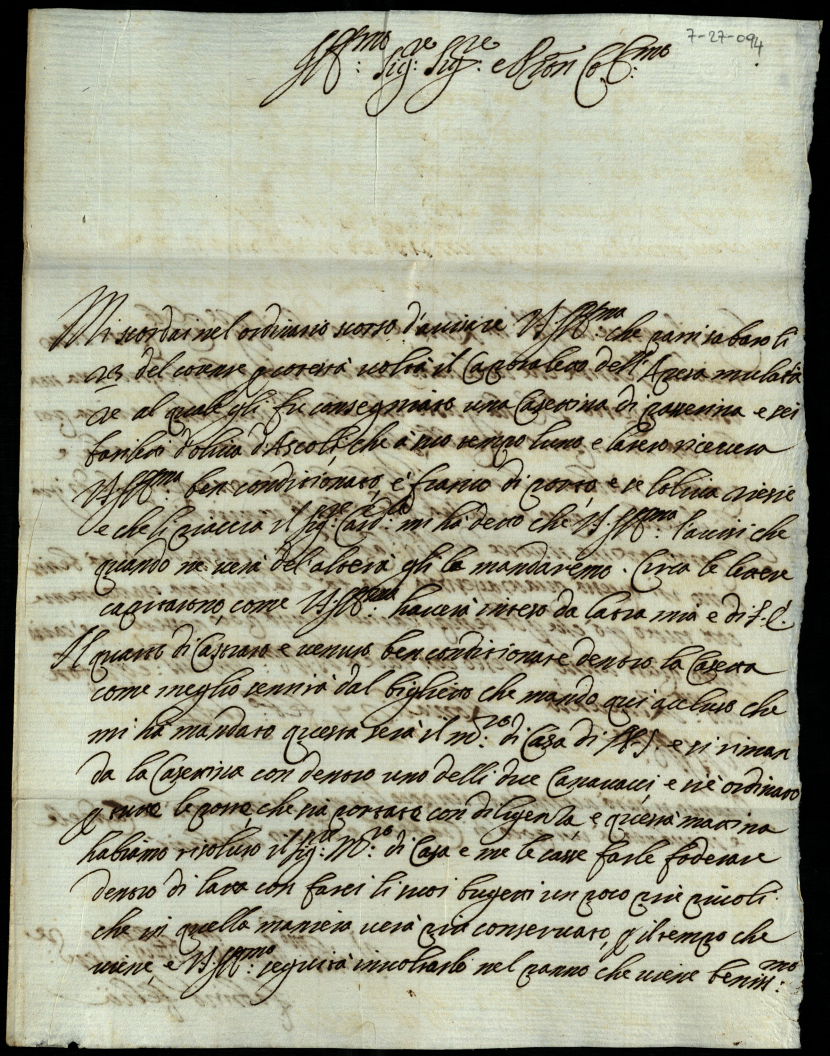 7-27-094
Ill.mo Sig.re Sig.re e Pron Co. C.mo
Mi scordai nel ordinario scorso d'avisare V.S. Ill.ma che parti sabato li
23 del corrente p costà volta il Capotaleo dell'Apera mulatie
re al quale gli fu consegniato una Casettina di passerina e sei
bariletti d'oliva d'Ascoli che à suo tempo l'uno e l'altro ricevera
V.S. Ill.ma ben conditionato, e franco di porto, e se l'oliva riesce
e che li piaccia il Sig.re Card.le mi ha detto che V.S. Ill.ma l'avisi che
quando ne verà del'altera gli la mandaremo. Circa le lettere
capitarono, come V.S. Ill.ma haverà inteso da latra mia e di S. E.
Il quarto di Castrato e venuto ben conditionate dentro la Casetta
come meglio sentirà dal biglietto che mando qui accluso che
mi ha mandato questa serà il m.ro di Casa di N. S. e si riman
da la Casettina con dentro uno delli due Canavacci e si è ordinato
p tutte le poste che sia portate con diligenza, e questa mattina
habiamo risoluto il Sig.r M.ro di Casa e me le casse farle foderare
dentro di latta con farci li suoi bugetti un poco più picoli
che in quella maniera verà più conservato, p il tempo che
viene, e V.S. Ill.ma seguirà involtarlo nel panno che viene beniss.mo